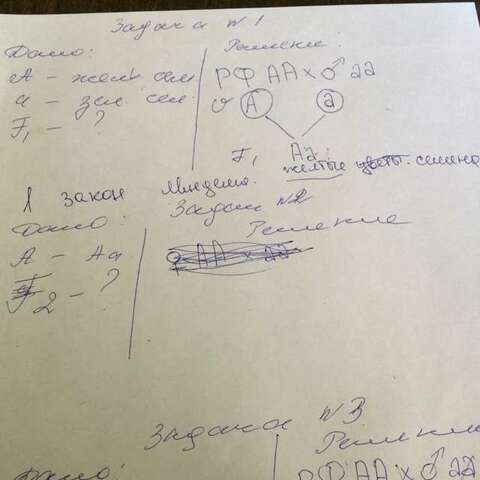 Задача №1
Дано: Решение:
А - жел. сем РФ АА х ♂ аа
а - зел. сем. А а
F1 - ?
F1 Аа
желтые цветы. семена
1 закон Менделя.
Задача №2
Дано: Решение
А - Аа ♀ АА х аа
F2 - ?
Задача №3
Дано: Решение
РФ АА х ♂ аа